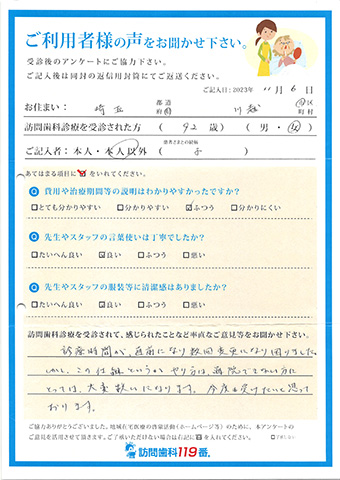 ご利用者様の声をお聞かせ下さい。
受診後のアンケートにご協力下さい。
ご記入後は同封の返信用封筒にてご返送ください。
ご記入日：2023年 11月 6日
お住まい： 埼玉 都道府県 川越 市区町村
訪問歯科診療を受診された方 （ 92 歳） （ 男 ・ 女 ）
ご記入者：本人・本人以外 （ 患者さまとの続柄 子 ）
あてはまる項目に☑をいれてください。
Q 費用や治療期間等の説明はわかりやすかったですか？
□とても分かりやすい □分かりやすい ☑ふつう □分かりにくい
Q 先生やスタッフの言葉使いは丁寧でしたか？
□たいへん良い ☑良い □ふつう □悪い
Q 先生やスタッフの服装等に清潔感はありましたか？
□たいへん良い ☑良い □ふつう □悪い
訪問歯科診療を受診されて、感じられたことなど率直なご意見等をお聞かせ下さい。
診療時間が、直前になり数回変更になり困りました。
しかし、この仕組というか やり方は、病院できない方に
とっては、大変救いになります。今後も受けたいと思って
おります。
ご協力ありがとうございました。地域在宅医療の啓蒙活動（ホームページ等）のために、本アンケートの
ご意見を活用させて頂きます。ご了承いただけない場合は右記に☑を入れてください。
訪問歯科119番。